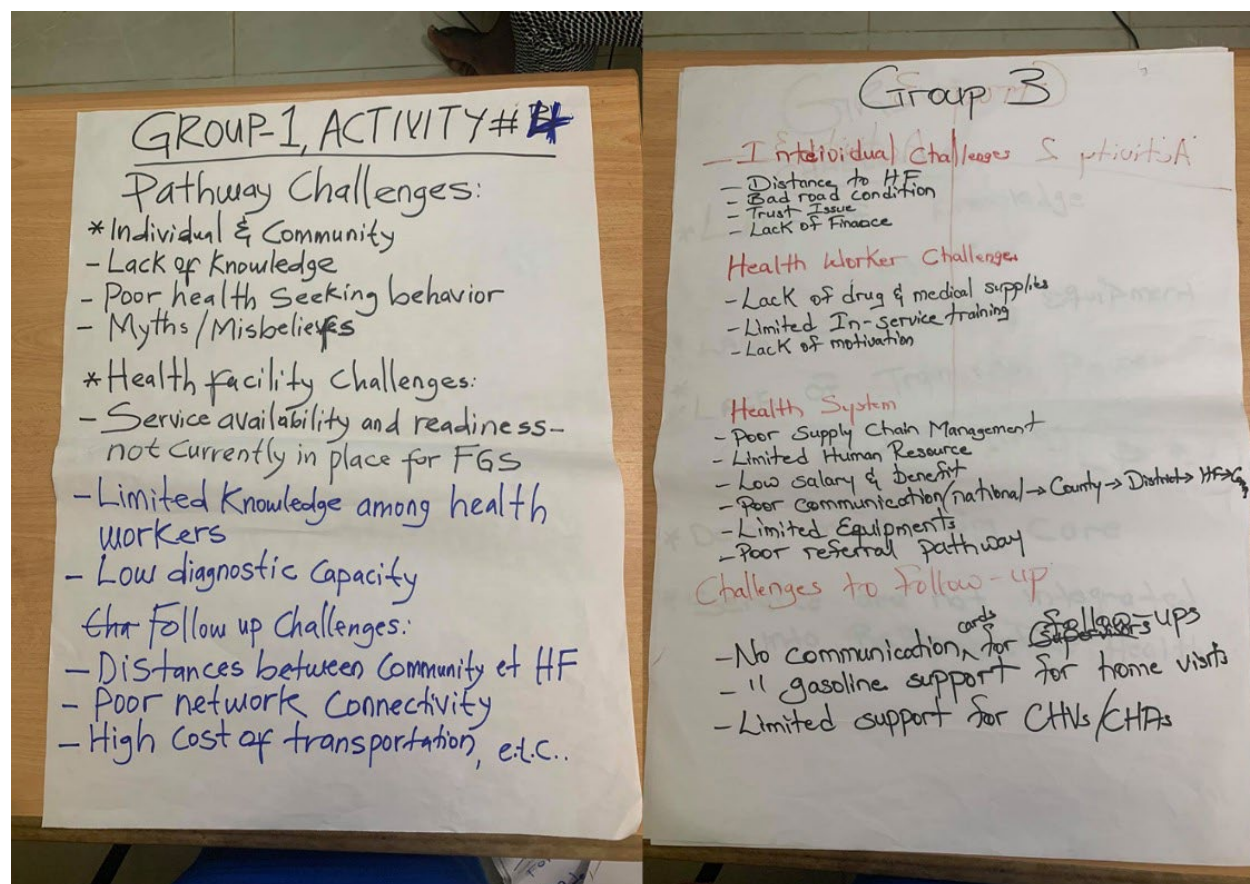 GROUP-1, ACTIVITY# 4
Pathway Challenges:
* Individual & Community
- Lack of Knowledge
- Poor health Seeking behavior
- Myths/Misbeliefs
* Health facility Challenges:
- Service availability and readiness-
not currently in place for FGS
- Limited Knowledge among health
workers
- Low diagnostic Capacity
Follow up Challenges:
- Distances between Community et HF
- Poor network Connectivity
- High Cost of transportation, e.t.c..
Group 3
- Individual Challenges
- Distance to HF
- Bad road condition
- Trust Issue
- Lack of Finance
Health Worker Challenges
- Lack of drug & medical supplies
- Limited In-service training
- Lack of motivation
Health System
- Poor Supply Chain Management
- Limited Human Resource
- Low Salary & benefit
- Poor communication (national → County → District → HF →
- Limited Equipments
- Poor referral pathway
Challenges to follow-up
- No communication cards for follow-ups
- " gasoline support for home visits
- Limited support for CHVs/CHAs